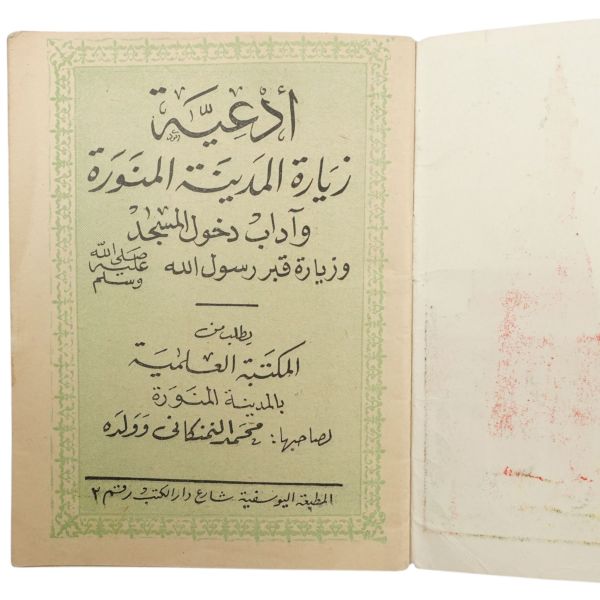 أدعية
زيارة المدينة المنورة
وآداب دخول المسجد
وزيارة قبر رسول الله صلى الله عليه وسلم
يطلب من
المكتبة العلمية
بالمدينة المنورة
لصاحبها: محمد النمنكاني وولده
المطبعة اليوسفية شارع دار الكتب رقم ٢